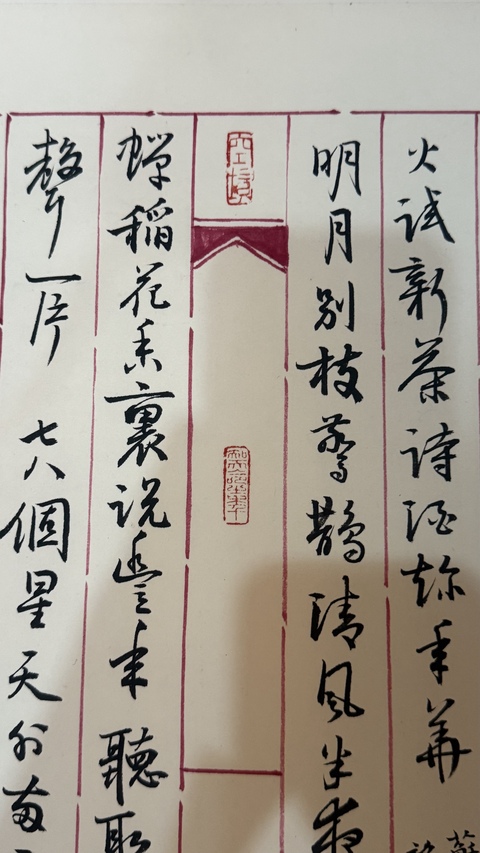 火试新茶诗酒趁年華
明月别枝驚鵲清風半夜
蟬稻花香裏说豐年 聽取
聲一片 七八個星天外兩